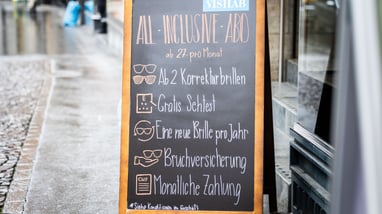 VISILAB
ALL-INCLUSIVE-ABO
ab 27.- pro Monat
Ab 2 Korrekturbrillen
Gratis Sehtest
Eine neue Brille pro Jahr
Bruchversicherung
Monatliche Zahlung
*Siehe Konditionen im Geschäft